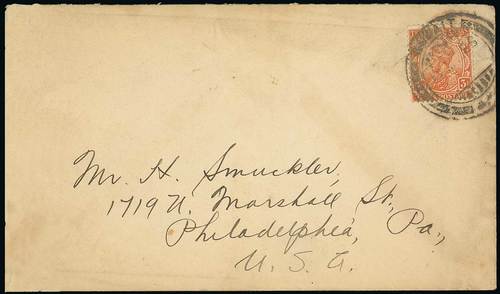 Mr. H. Smuckler,
1719 N. Marshall St.,
Philadelphia, Pa.,
U. S. A.